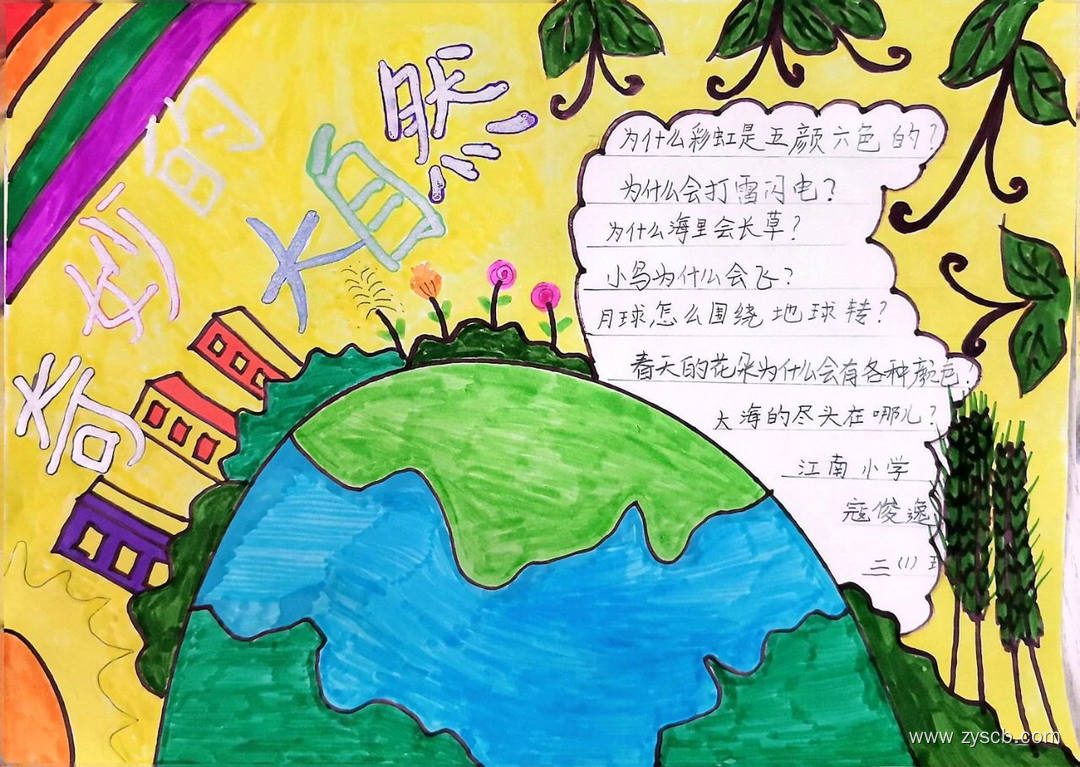 奇妙的
大自然
为什么彩虹是五颜六色的?
为什么会打雷闪电?
为什么海里会长草?
小鸟为什么会飞?
月球怎么围绕地球转?
春天的花朵为什么会有各种颜色.
大海的尽头在哪儿?
江南小学
寇俊逸
二(1)
www.zyscb.com